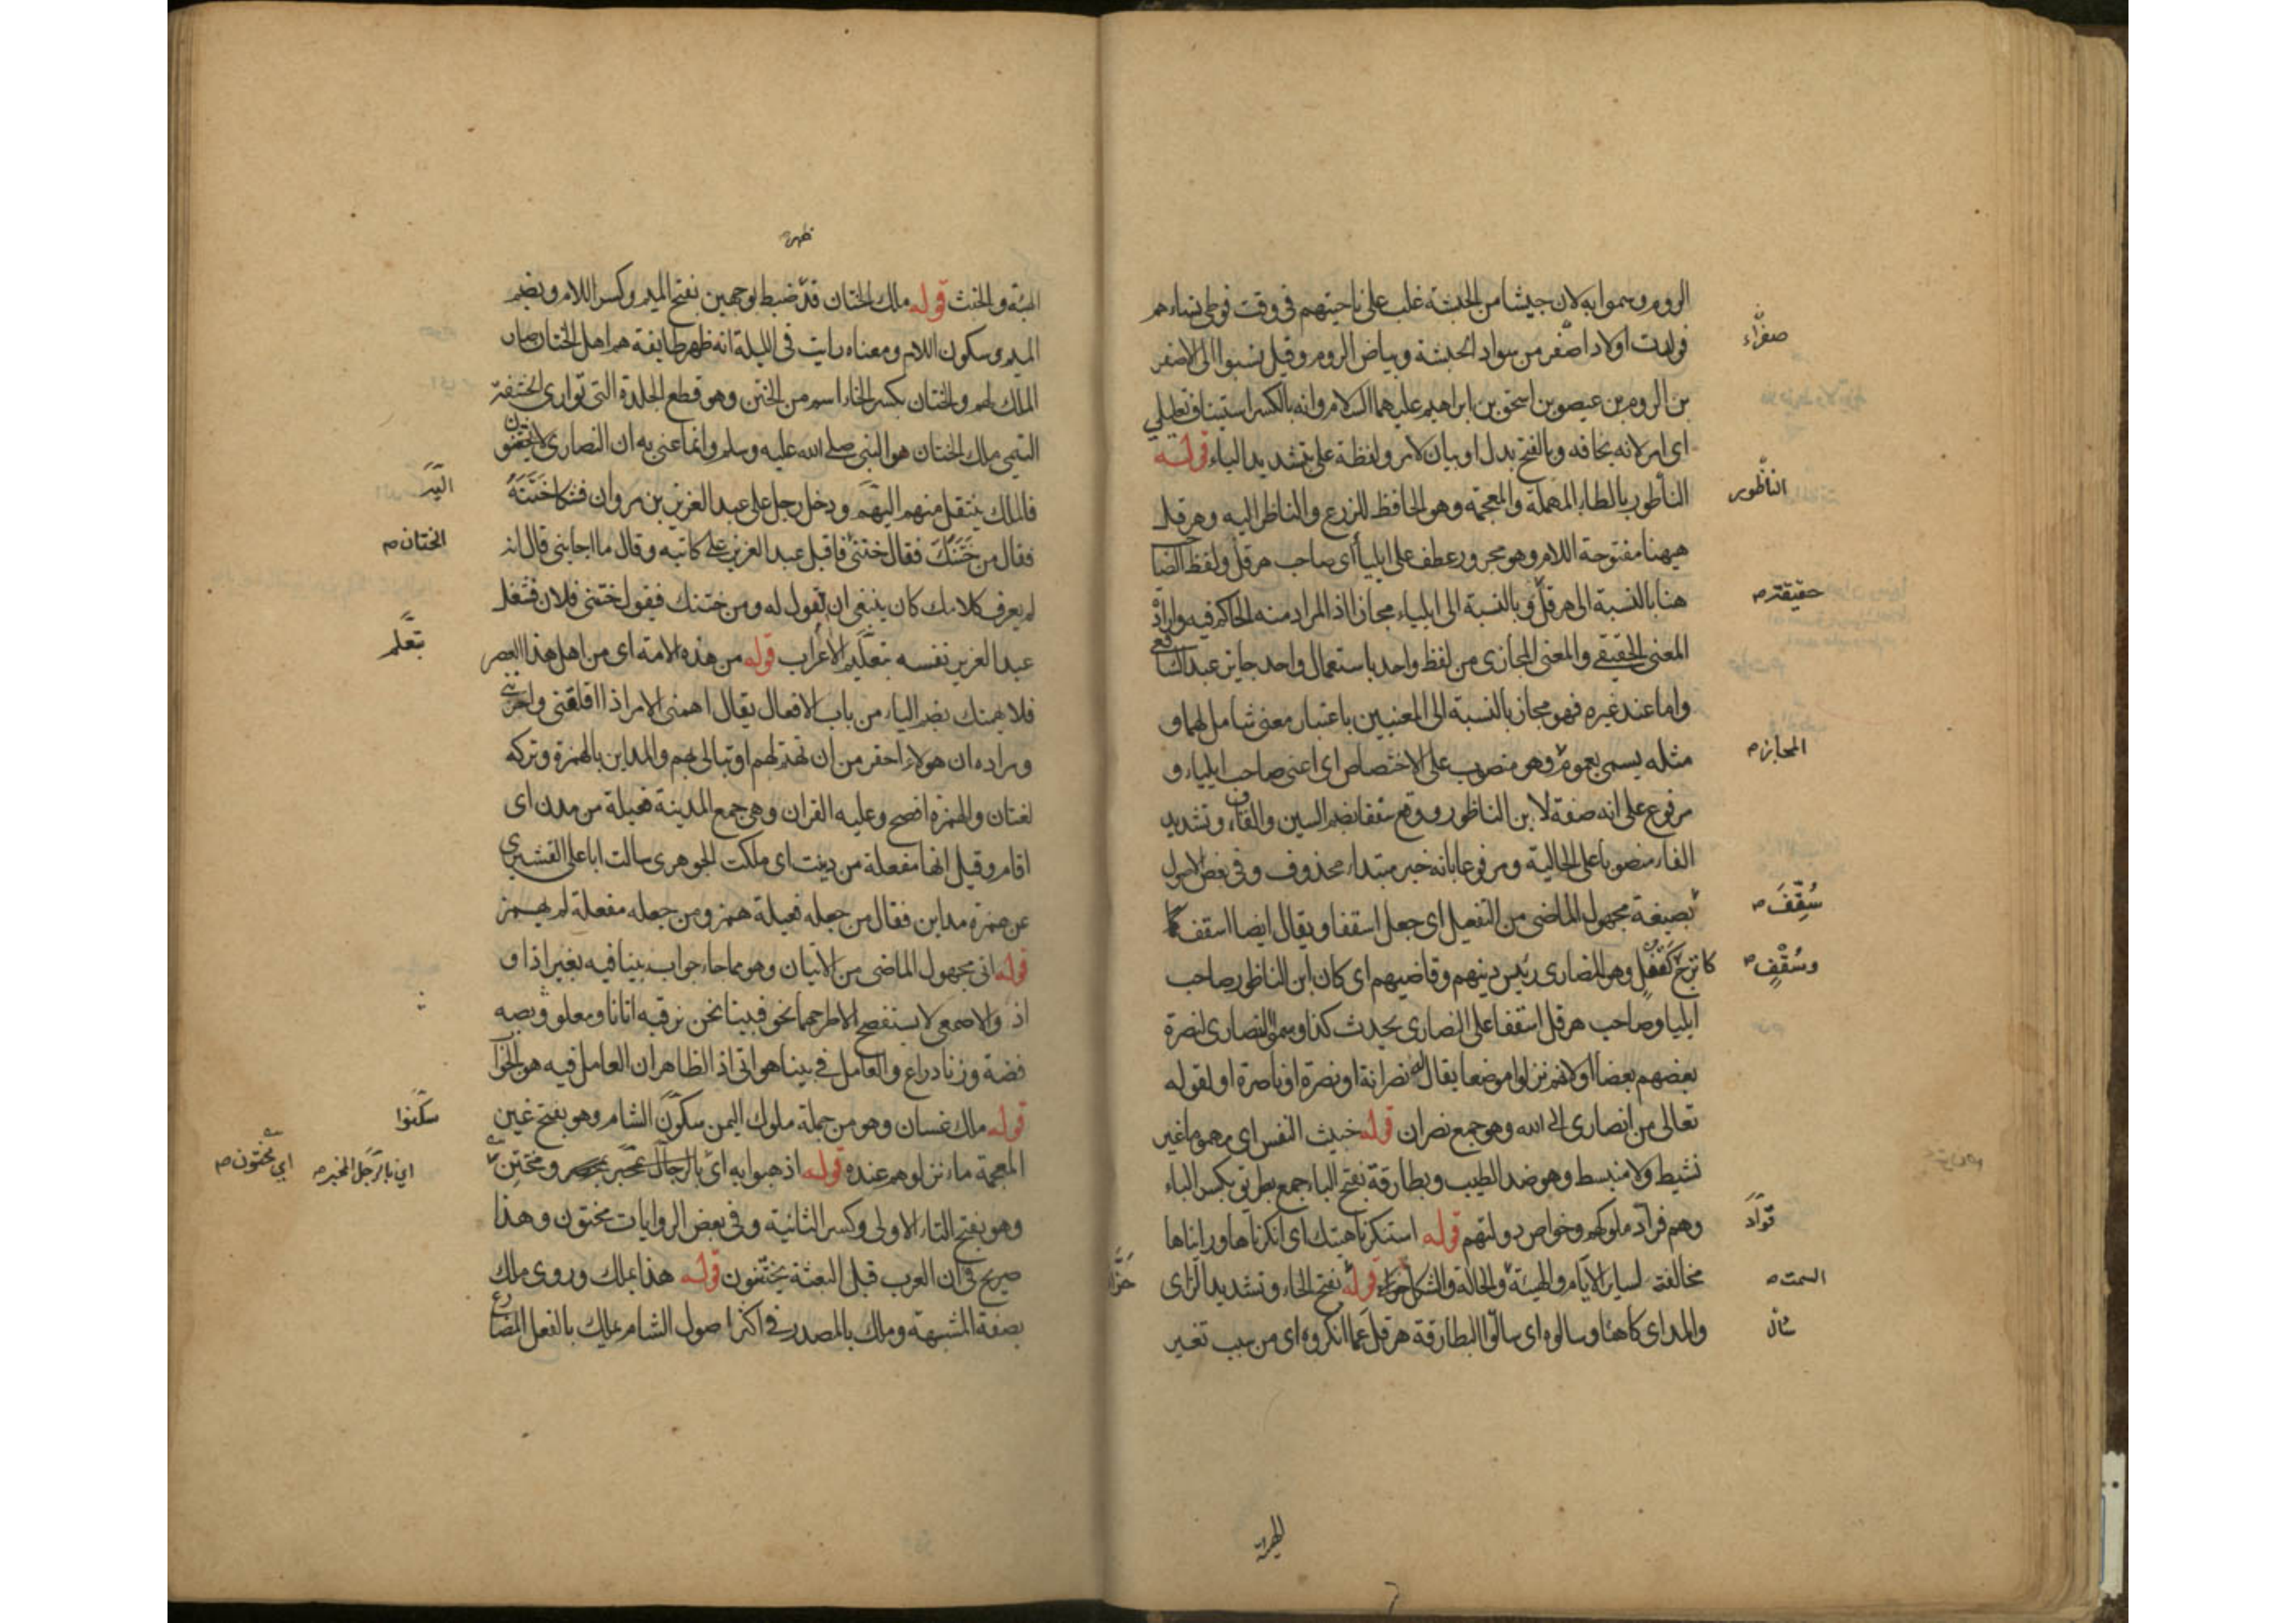 الروم وسموا به لان جيشا من الحبشة غلب على ناحيتهم فى وقت فوطى نساءهم
فولدت اولادا صفر من سواد الحبشة وبياض الروم وقيل نسبوا الى الاصفر
بن الروم بن عيصو بن اسحق بن ابراهيم عليهما السلام وانه بالكسر استيناف تعليلي
اى امر لانه يخافه وبالفتح بدل او بيان لامر ولفظة على بتشديد الياء قوله
الناطور بالطاء المهملة والمعجمة وهو الحافظ للزرع والناظر اليه وهرقل
ههنا مفتوحة اللام وهو مجرور عطف على ايليا أى صاحب هرقل ولفظ الصا
هنا بالنسبة الى هرقل و بالنسبة الى ايلياء مجاز اذ المراد منه الحاكم فيه وارادة
المعنى الحقيقي والمعنى المجازى من لفظ واحد باستعمال واحد جايز عند الشافعي
واما عند غيره فهو مجاز بالنسبة الى المعنيين باعتبار معنى شامل لهما و
مثله يسمى بعموم وهو منصوب على الاختصاص اى اعنى صاحب ايلياء و
مرفوع على انه صفة لابن الناظور ووقع سقفا بضم السين والقاف وتشديد
الفاء منصوبا على الحالية ومرفوعا بانه خبر مبتداء محذوف وفى بعض الاصول
بصيغة مجهول الماضى من التفعيل اى جعل اسقفا ويقال ايضا اسقف
كاترج كقفل وهو للنصارى رئيس دينهم وقاضيهم اى كان ابن الناظور صاحب
ايليا وصاحب هرقل اسقفا على النصارى يحدث كذا وسموا النصارى لنصرة
بعضهم بعضا او لانهم نزلوا موضعا يقال له نصرانة او نصرة او ناصرة او لقوله
تعالى من انصارى الى الله وهو جمع نصران قوله خبيث النفس اى مهموما غير
نشيط ولا منبسط وهو ضد الطيب وبطارقة بفتح الباء جمع بطريق بكسر الباء
وهم قواد ملوكهم وخواص دولتهم قوله استنكرنا هيئتك اى انكرناها ورايناها
مخالفة لساير الايام والهيئة والحالة والشكل قوله بفتح الحاء وتشديد الزاى
والمد اى كاهنا وسالوه اى سالوا البطارقة هرقل عما انكروه اى من سبب تغير
صفراء
الناظور
حقيقته
المجاز
سُقِّفَ
وسُقْفٍ
قوّاد
السمت
حزّاء
ظهر
الهيئة والخبث قوله ملك الختان قد ضبط بوجهين بفتح الميم وكسر اللام وبضم
الميم وسكون اللام ومعناه رايت فى الليلة انه ظهر طايفة هم اهل الختان صار
الملك لهم والختان بكسر الخاء اسم من الختن وهو قطع الجلدة التى توارى الحشفة
التيمى ملك الختان هو النبى صلى الله عليه وسلم وانما عنى به ان النصارى لا يختتنون
فالملك ينتقل منهم اليهم ودخل رجل على عبد العزيز بن مروان فشكا خَتَنَهُ
فقال من خَتَنَكَ فقال ختنى فاقبل عبد العزيز على كاتبه وقال ما اجابنى قال انه
لم يعرف كلامك كان ينبغى ان تقول له ومن ختنك فيقول ختنى فلان فشغل
عبد العزيز نفسه بتعلم الاعراب قوله من هذه الامة اى من اهل هذا العصر
فلا يهمنك بضم الياء من باب الافعال يقال اهمنى الامر اذا اقلقنى واحزننى
ومراده ان هولاء احقر من ان تهتم لهم او تبالى بهم والمداين بالهمزة وتركه
لغتان والهمزة افصح وعليه القران وهى جمع المدينة فعيلة من مدن اى
اقام وقيل انها مفعلة من دينت اى ملكت الجوهرى سالت ابا على القشيرى
عن همزة مداين فقال من جعله فعيلة همز ومن جعله مفعلة لم يهمز
قوله اتى مجهول الماضى من الاتيان وهو مما جاء جواب بينا فيه بغير اذا و
اذ والاصمعى لا يستفصح الا طرحهما نحو فبينا نحن نرقبه اتانا ومعلق وبصه
فضة وزناد راع والعامل فى بينا هو اتى اذ الظاهر ان العامل فيه هو الجوا
قوله ملك غسان وهو من جملة ملوك اليمن سكون الشام وهو بفتح غين
المعجمة ماء نزلوهم عنده قوله اذهبوا به اى بالرجال ومختتن
وهو بفتح التاء الاولى وكسر الثانية وفى بعض الروايات مختون وهذا
صريح فى ان العرب قبل البعثة يختتنون قوله هذا يملك وروى ملك
بصفة المشبهة وملك بالمصدر فى اكثر اصول الشام يملك بالفعل المضارع
الختان
بتعلم
سكنوا
اى بالرجل المخبر
اى مختون